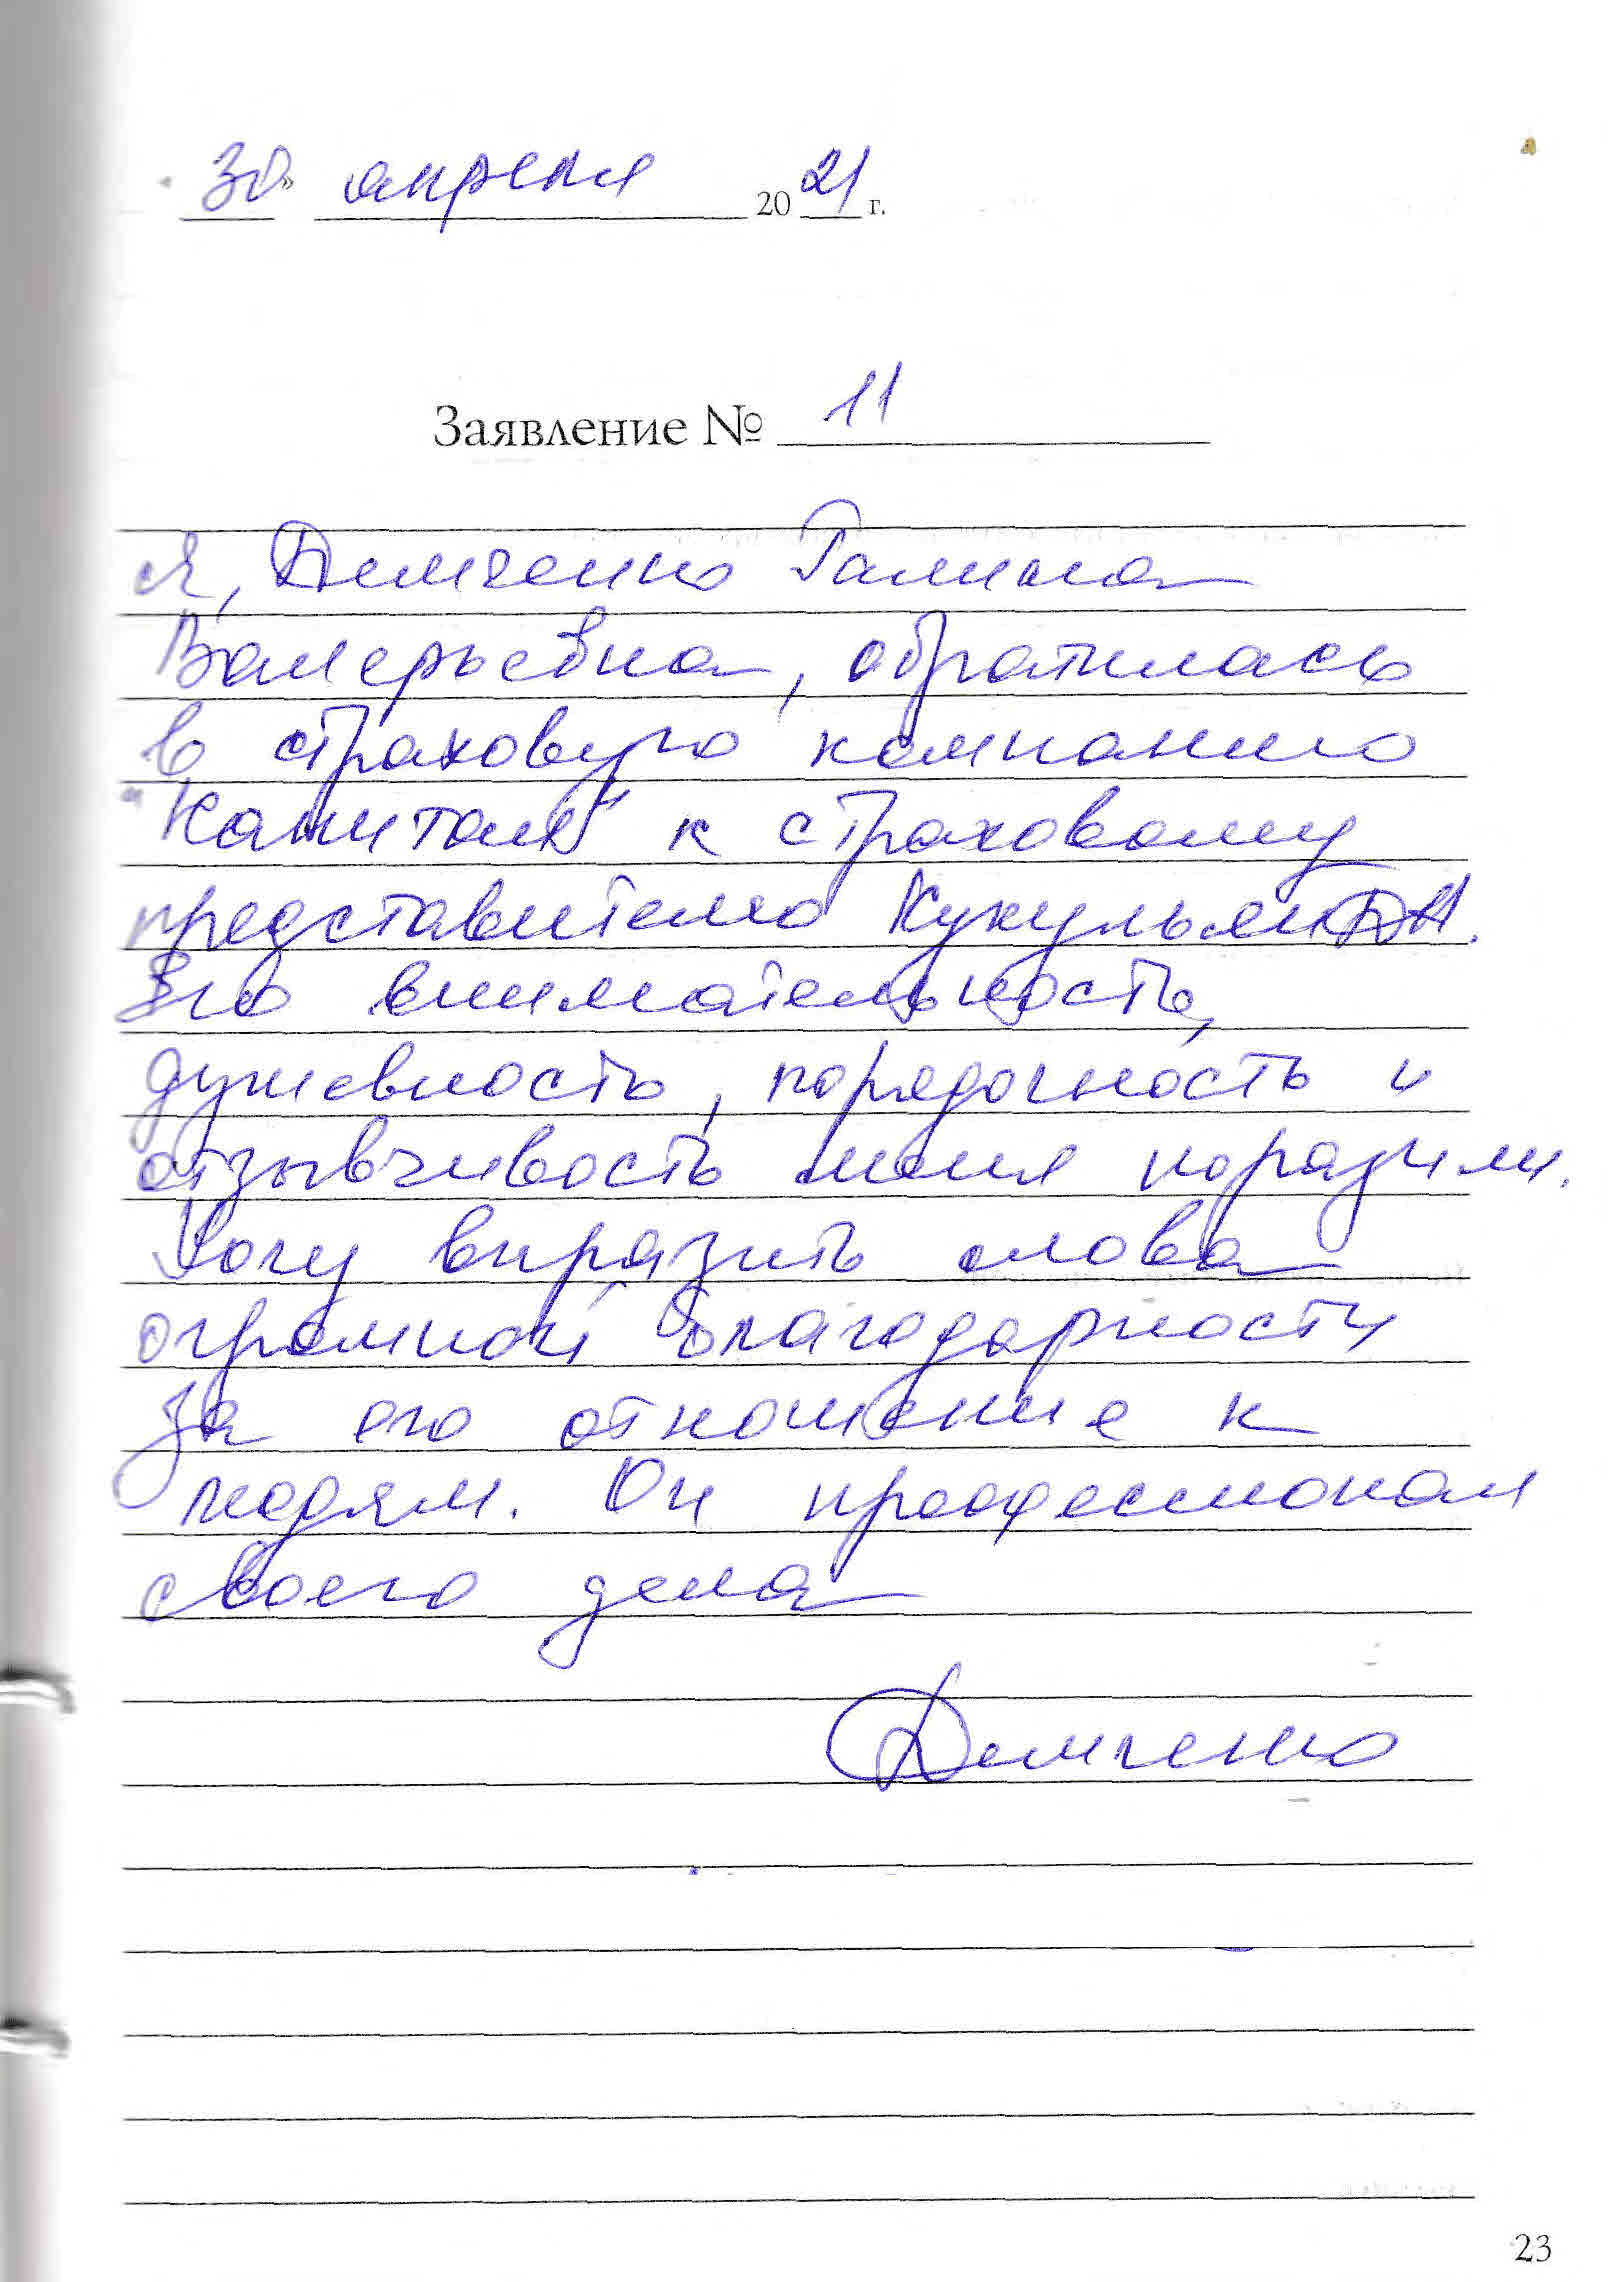 30» апреля 2021 г.
Заявление № 11
Я, Демченко Галина
Валерьевна, обратилась
в страховую компанию
"Капитал" к страховому
представителю Кукульян Д.Н.
Его внимательность,
душевность, порядочность и
отзывчивость меня поразили.
Хочу выразить слова
огромной благодарности
за его отношение к
людям. Он профессионал
своего дела
Демченко
23